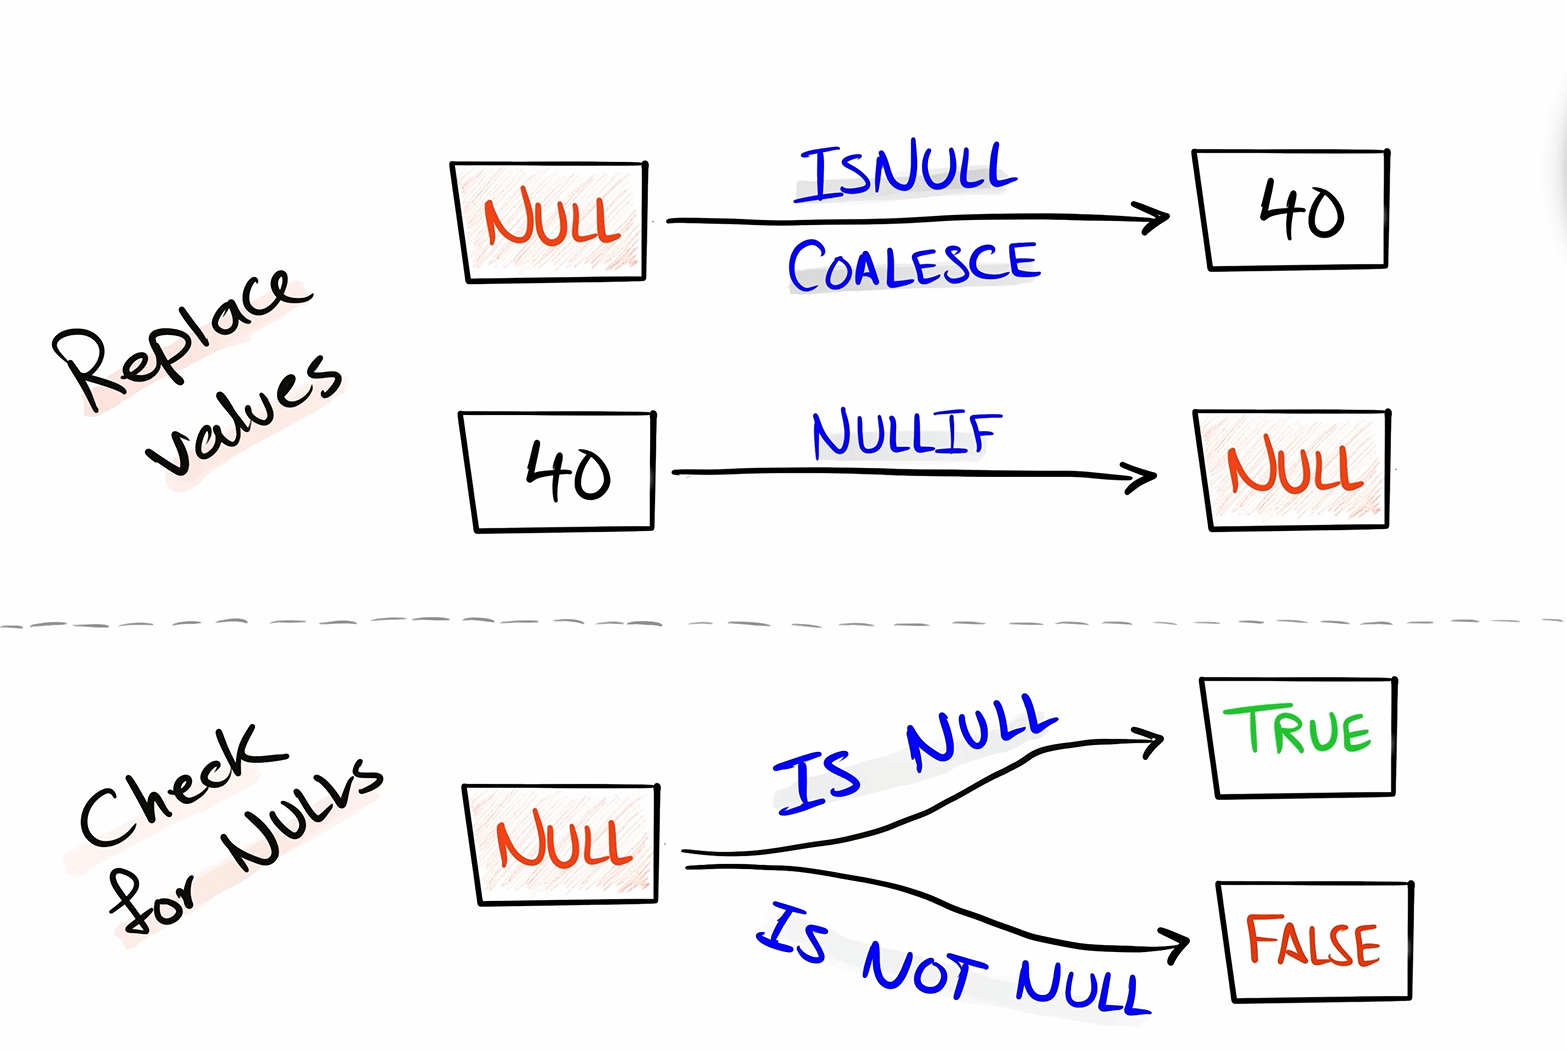 Replace
values
NULL
ISNULL
COALESCE
40
40
NULLIF
NULL
Check
for NULLs
NULL
IS NULL
TRUE
IS NOT NULL
FALSE